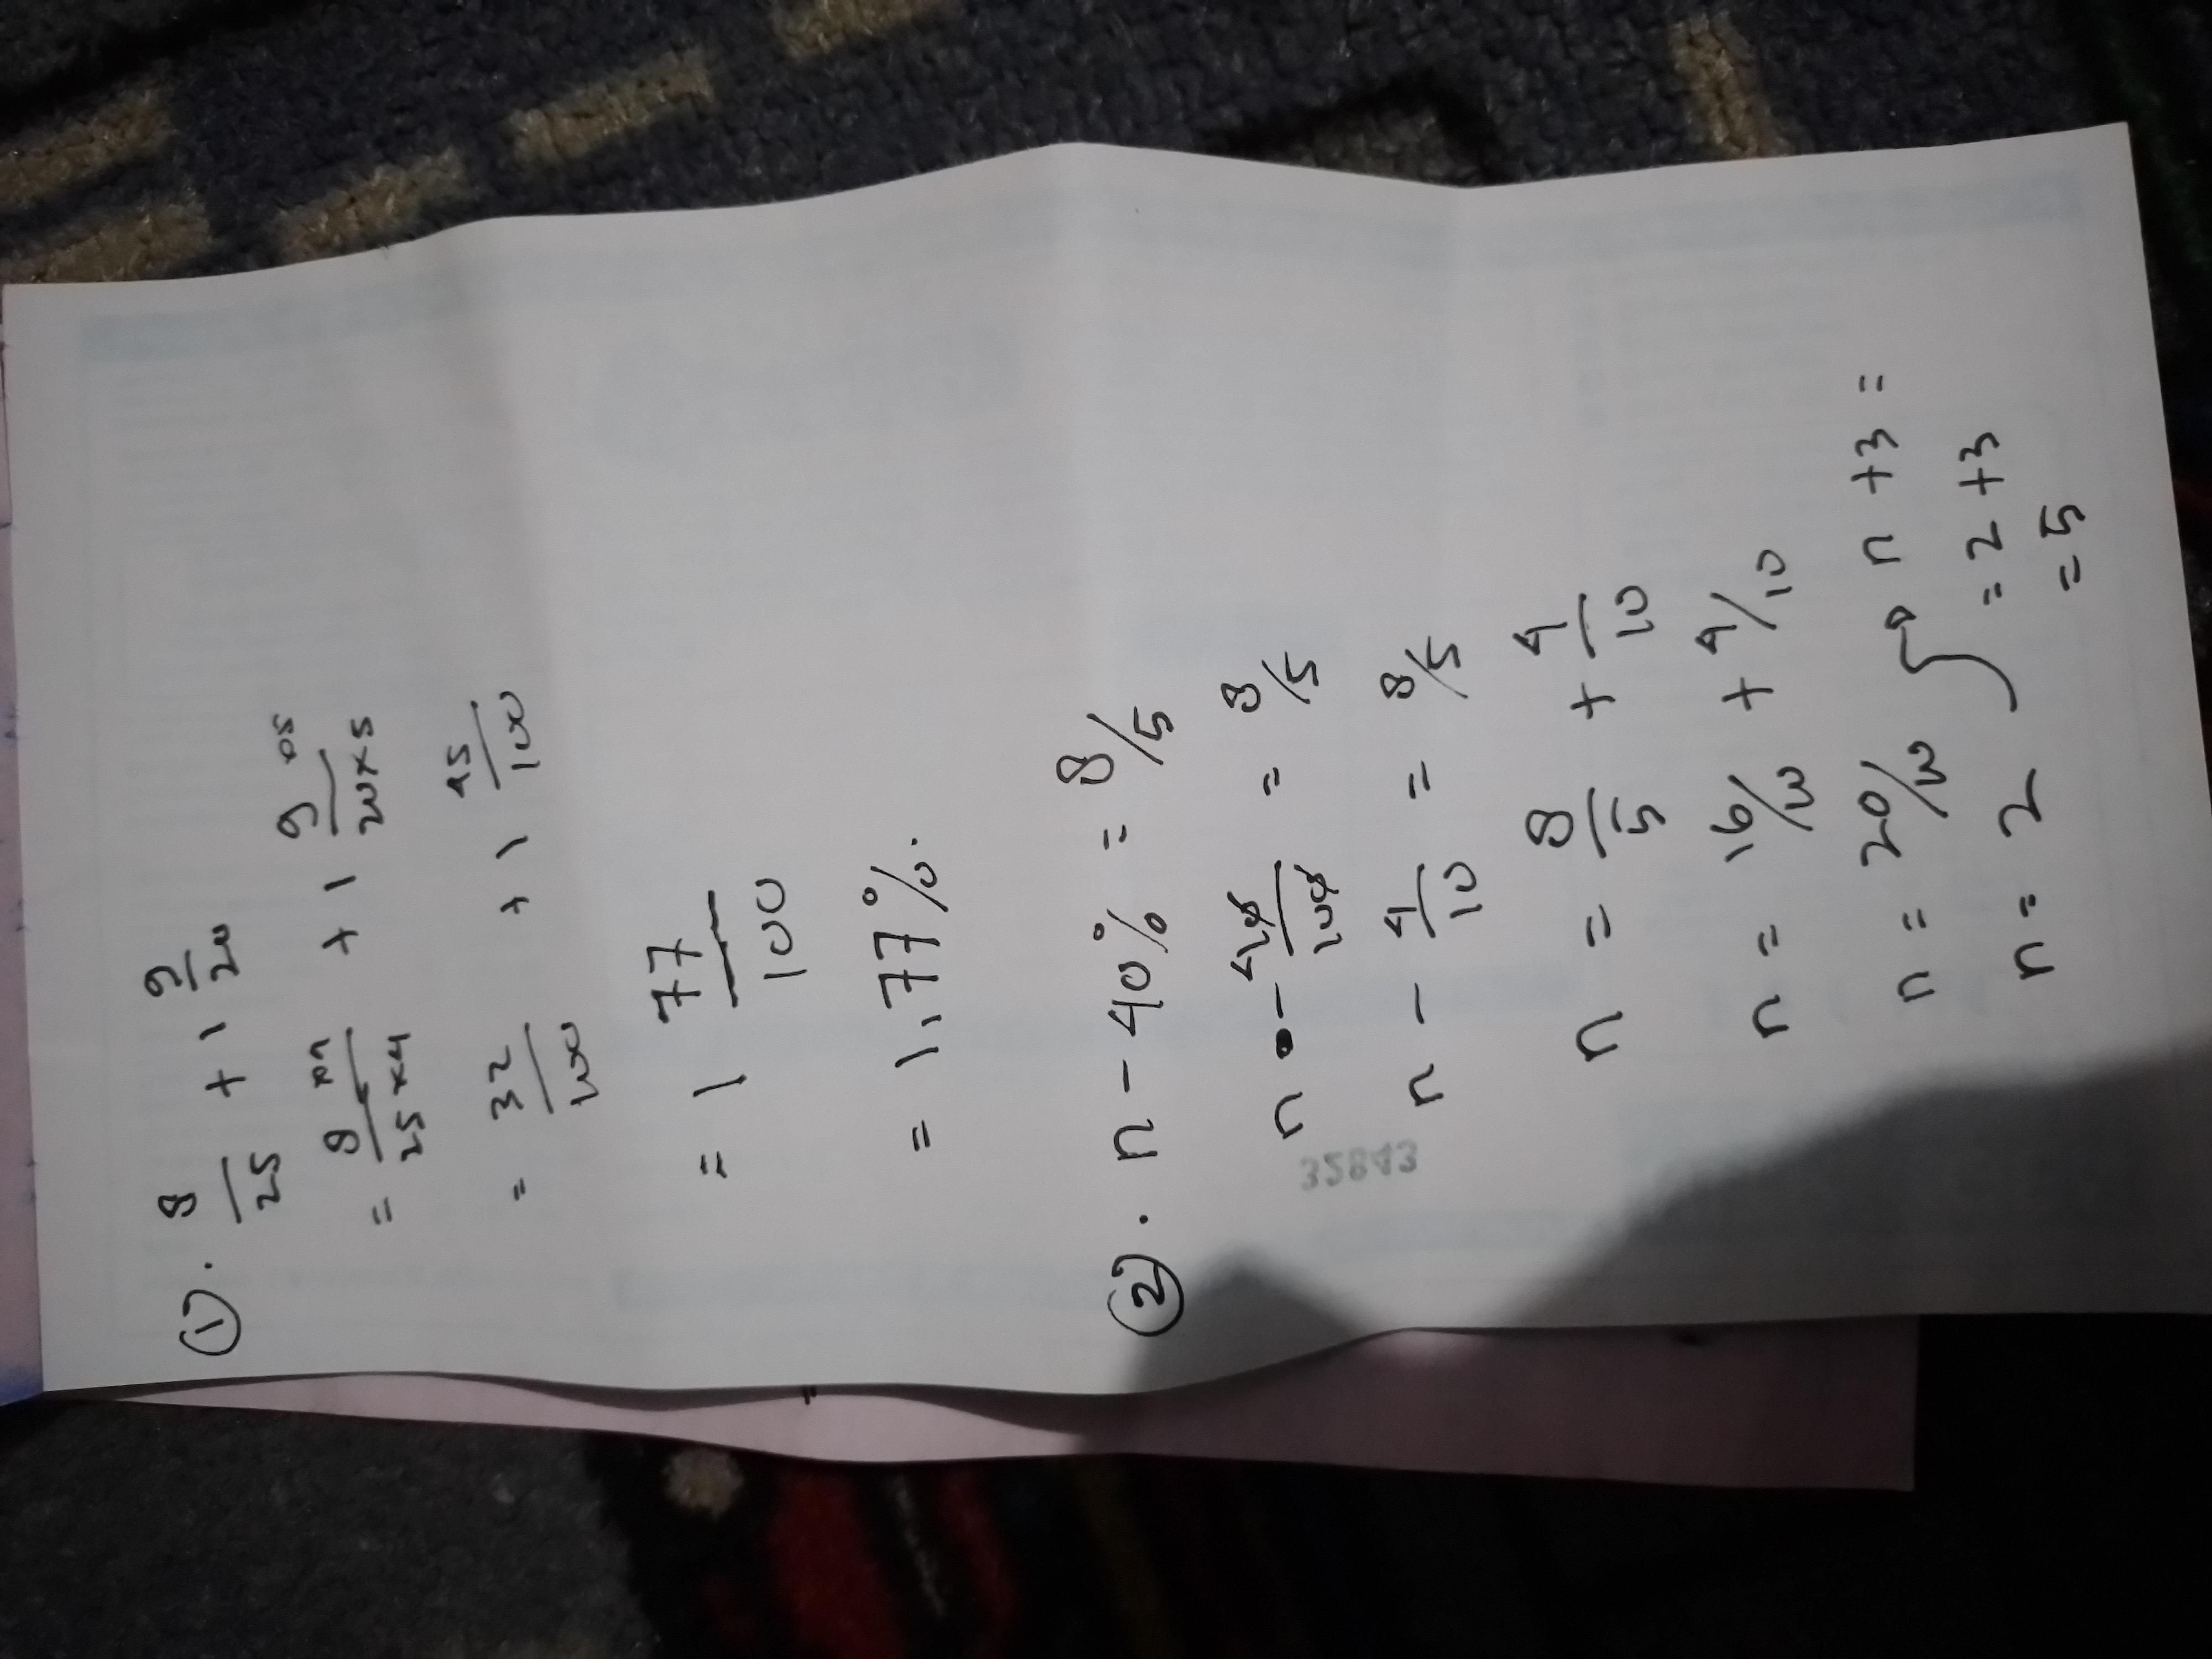 ①. 8/25 + 1 9/20
= 8 x4/25 x4 + 1 9 x5/20 x5
= 32/100 + 1 45/100
= 1 77/100
= 1,77%.
②. n - 40% = 8/5
n - 40/100 = 8/5
n - 4/10 = 8/5
n = 8/5 + 4/10
n = 16/10 + 4/10
n = 20/10
n = 2
n + 3 =
= 2 + 3
= 5